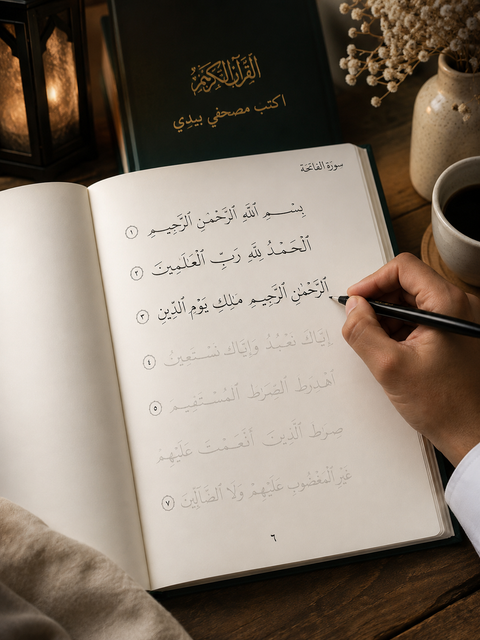 القرآن الكريم
اكتب مصحفي بيدي
سورة الفاتحة
بِسْمِ ٱللَّهِ ٱلرَّحْمَٰنِ ٱلرَّحِيمِ ١
ٱلْحَمْدُ لِلَّهِ رَبِّ ٱلْعَٰلَمِينَ ٢
ٱلرَّحْمَٰنِ ٱلرَّحِيمِ مَٰلِكِ يَوْمِ ٱلدِّينِ ٣
إِيَّاكَ نَعْبُدُ وَإِيَّاكَ نَسْتَعِينُ ٤
ٱلْمُسْتَقِيمَ ٥
صِرَٰط ٱلَّذِينَ أَنْعَمْتَ عَلَيْهِمْ
غَيْرِ ٱلْمَغْضُوبِ عَلَيْهِمْ وَلَا ٱلضَّآلِّينَ ٧
٦